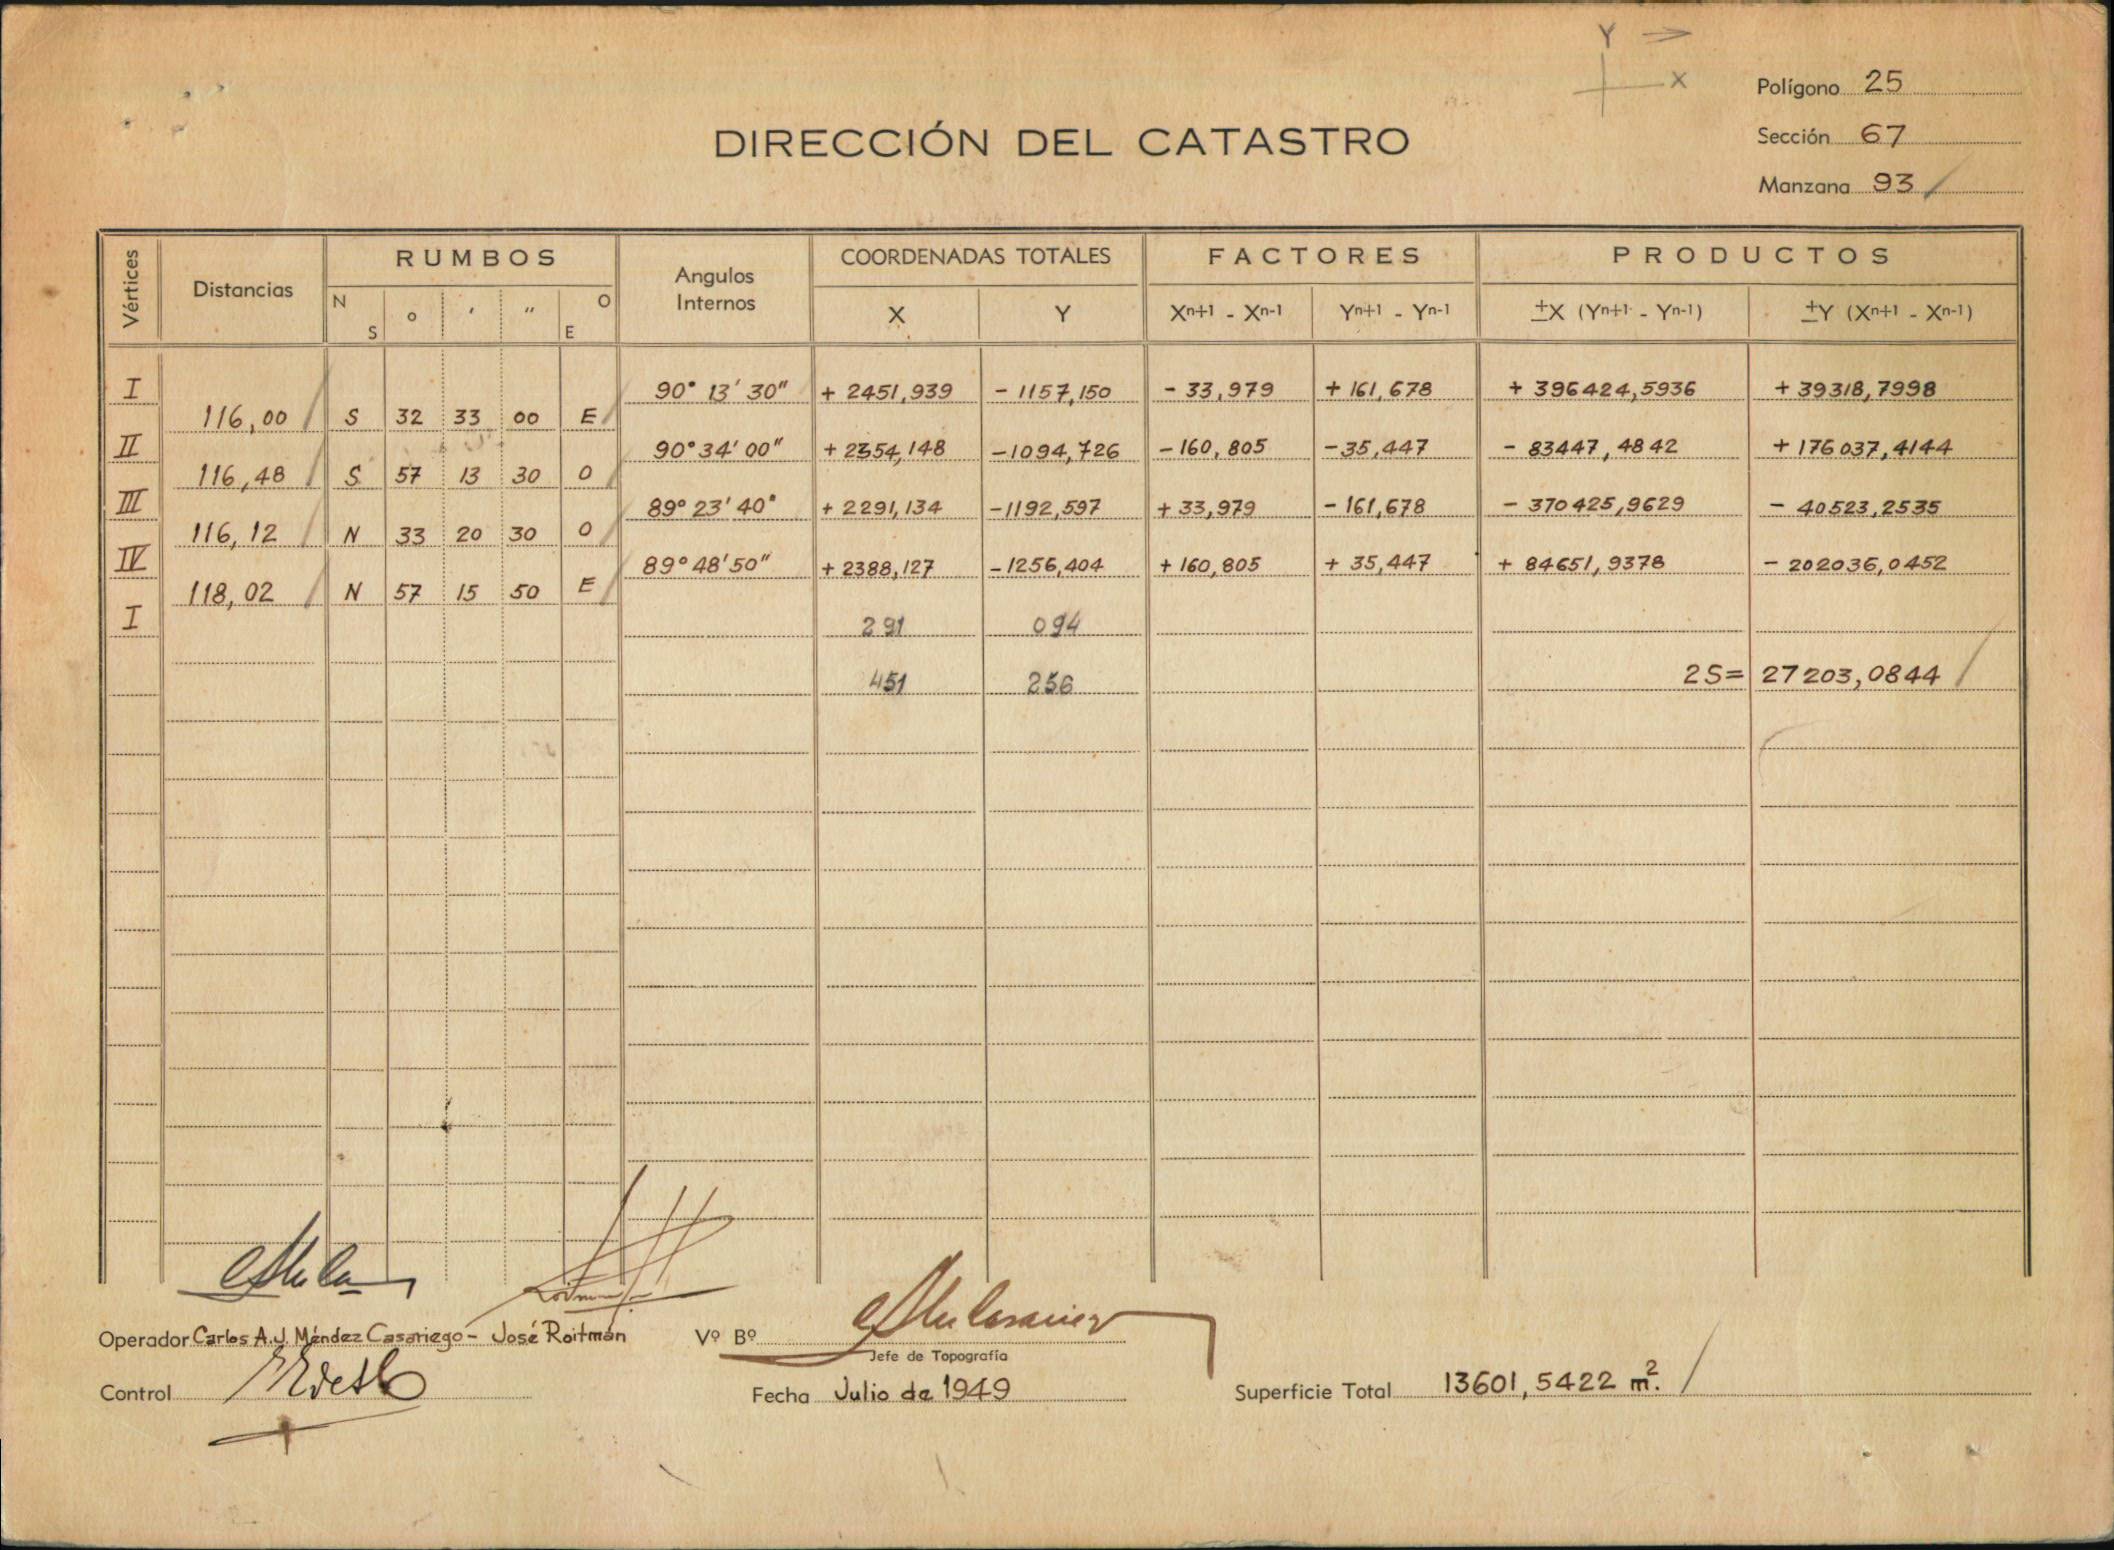 Y
X
Polígono 25
DIRECCIÓN DEL CATASTRO
Sección 67
Manzana 93
Vértices Distancias RUMBOS Angulos Internos COORDENADAS TOTALES FACTORES PRODUCTOS
N S o ′ ″ O E X Y Xn+1 - Xn-1 Yn+1 - Yn-1 ±X (Yn+1 - Yn-1) ±Y (Xn+1 - Xn-1)
I 90° 13′ 30″ + 2451,939 - 1157,150 - 33,979 + 161,678 + 396424,5936 + 39318,7998
116,00 S 32 33 00 E
II 90° 34′ 00″ + 2354,148 -1094,726 -160,805 -35,447 - 83447,4842 + 176037,4144
116,48 S 57 13 30 O
III 89° 23′ 40″ + 2291,134 -1192,597 + 33,979 - 161,678 - 370425,9629 - 40523,2535
116,12 N 33 20 30 O
IV 89° 48′ 50″ + 2388,127 -1256,404 + 160,805 + 35,447 + 84651,9378 - 202036,0452
118,02 N 57 15 50 E
I 291 094
451 256 2S= 27203,0844
Operador Carlos A.J. Méndez Casariego - José Roitmán Vº Bº
Jefe de Topografía
Control Fecha Julio de 1949 Superficie Total 13601,5422 m².